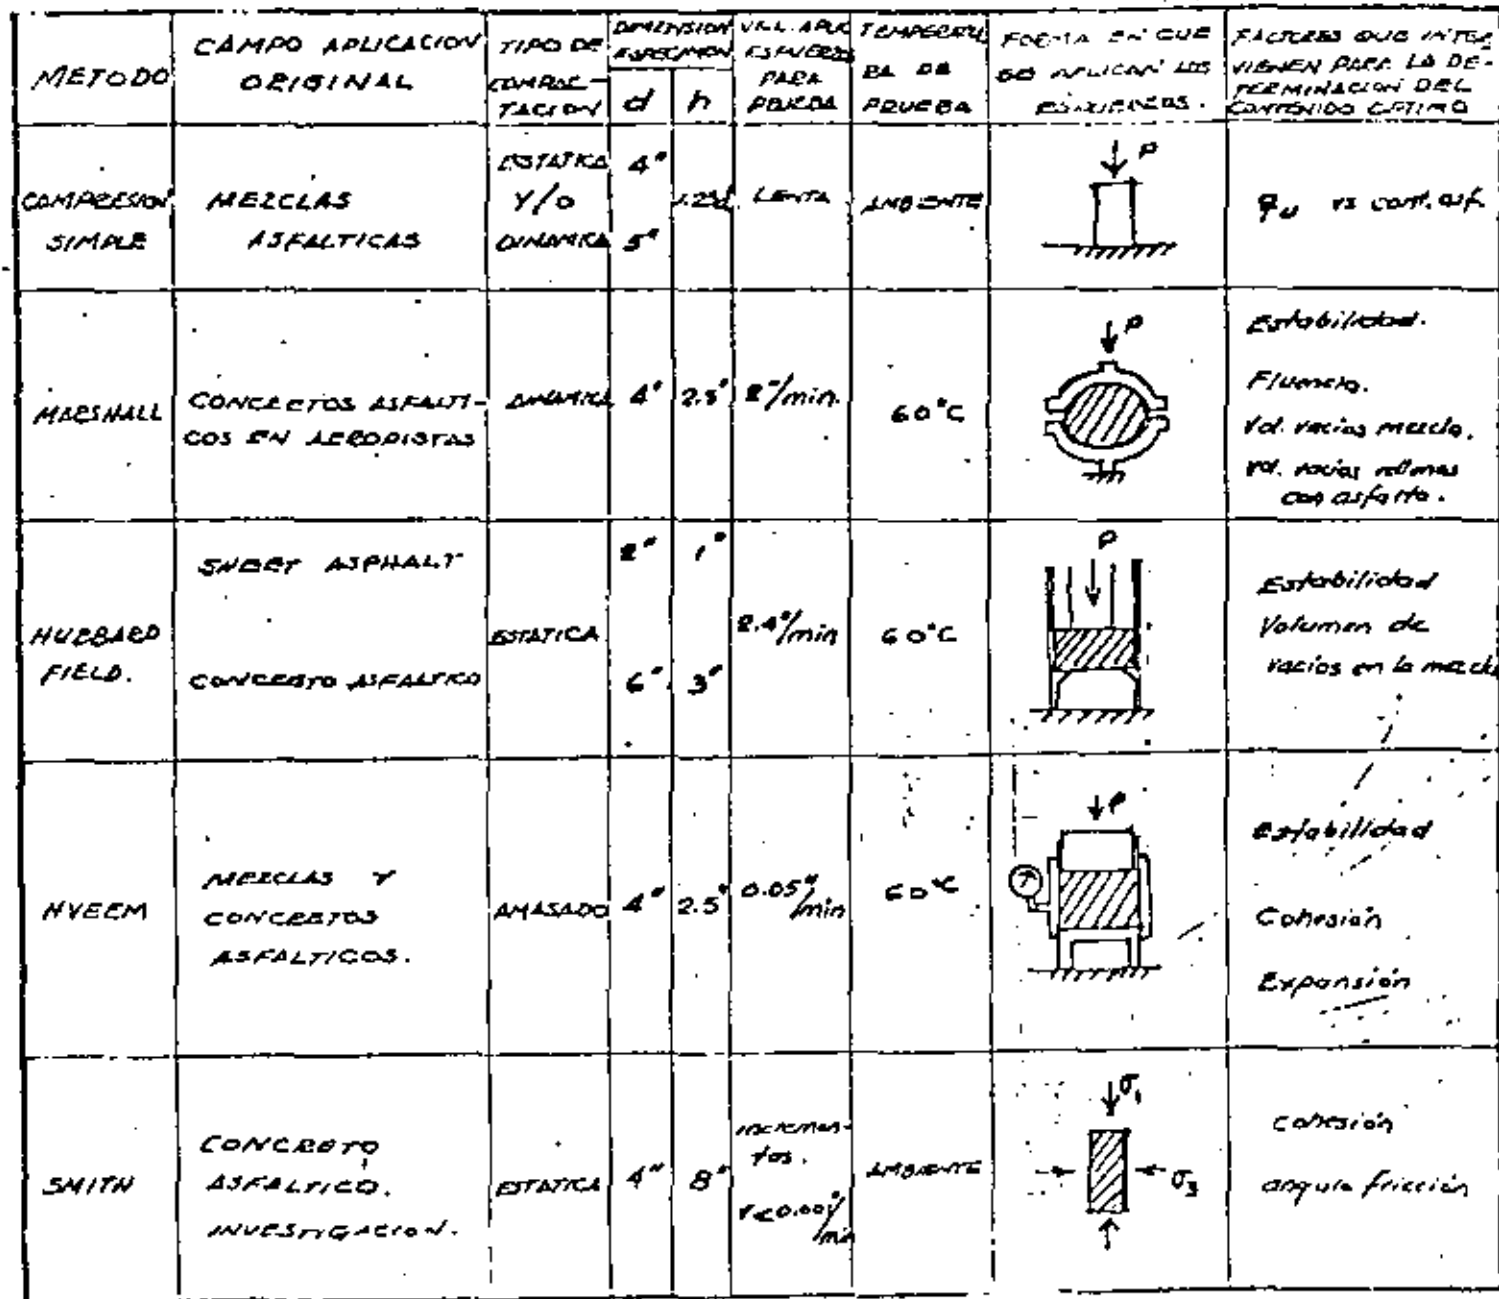 METODO
CAMPO APLICACION
ORIGINAL
TIPO DE
COMPAC-
TACION
DIMENSION
ESPECIMEN
d
h
VEL. APLIC
ESFUERZO
PARA
PRUEBA
TEMPERATU
RA DE
PRUEBA
FORMA EN QUE
SE APLICAN LOS
ESFUERZOS.
FACTORES QUE INTER
VIENEN PARA LA DE-
TERMINACION DEL
CONTENIDO OPTIMO
COMPRESION
SIMPLE
MEZCLAS
ASFALTICAS
ESTATICA
Y/O
DINAMICA
4"
5"
1.25d
LENTA
AMBIENTE
P
qu vs cont. asf.
MARSHALL
CONCRETOS ASFALTI-
COS EN AEROPISTAS
DINAMICA
4"
2.5"
2"/min.
60°C
P
Estabilidad.
Fluencia.
Vol. vacios mezcla.
Vol. vacios rellenos
con asfalto.
HUBBARD
FIELD.
SHEET ASPHALT
CONCRETO ASFALTICO
ESTATICA
2"
1"
6"
3"
2.4"/min
60°C
P
Estabilidad
Volumen de
vacios en la mezcla
HVEEM
MEZCLAS Y
CONCRETOS
ASFALTICOS.
AMASADO
4"
2.5"
0.05"/min
60°C
P
Estabilidad
Cohesión
Expansión
SMITH
CONCRETO
ASFALTICO.
INVESTIGACION.
ESTATICA
4"
8"
incremen-
tos.
AMBIENTE
σ1
σ3
cohesión
angulo fricción